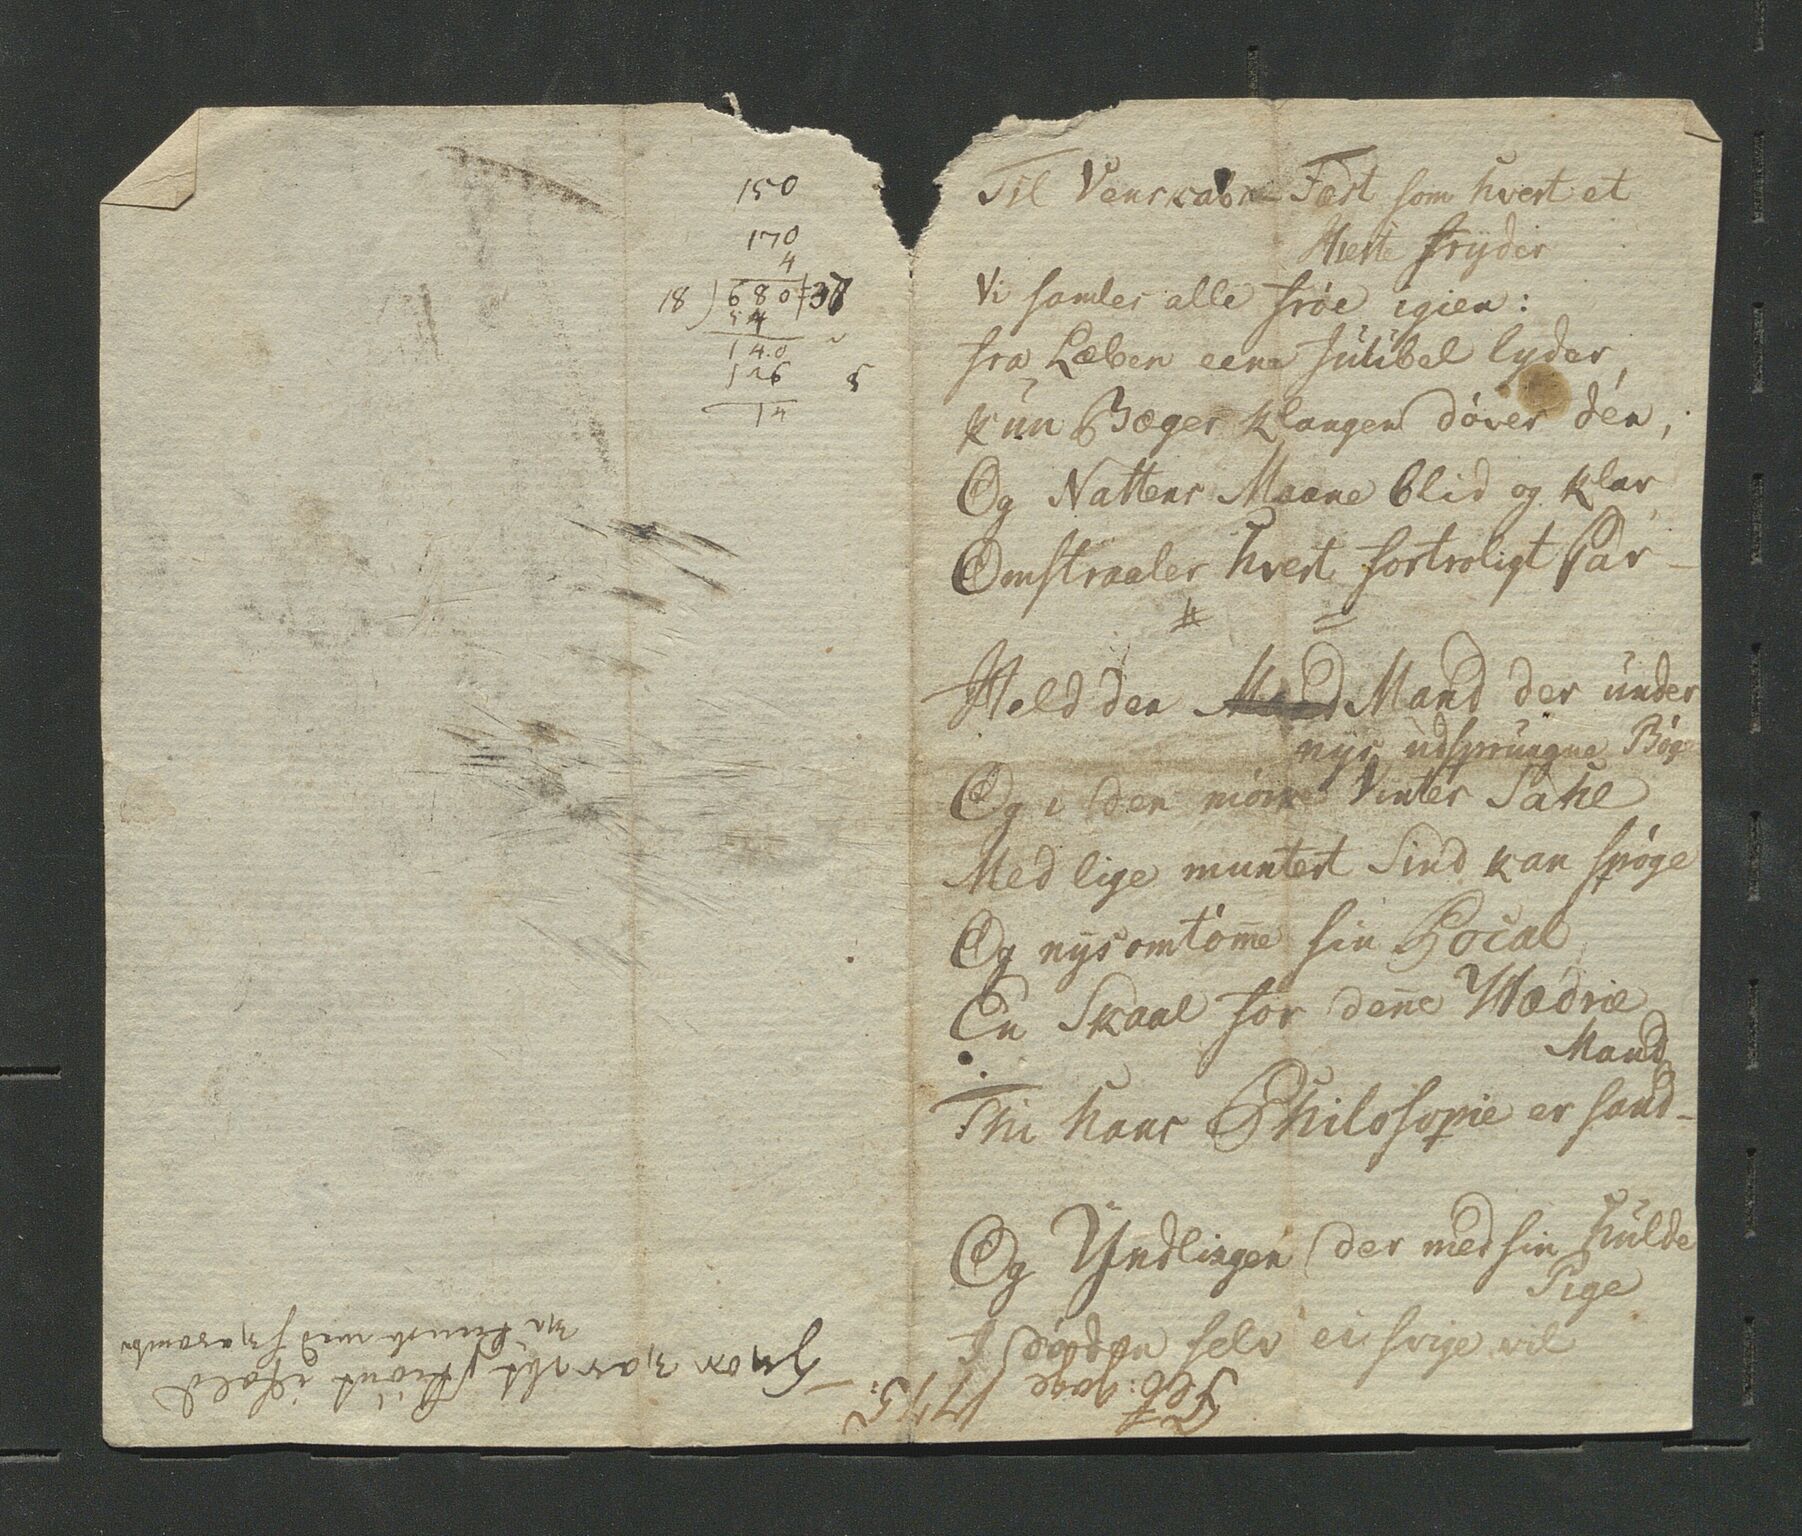 150
170
4
18 ) 680 ( 37
54
140
126 5
14
Til Venskabs Fæst som hvert et
Hierte fryder
Vi samles alle froe igien:
fra Læben eene Jubel lyder,
kun Bæger klangen døver den,
Og Nattens Maane blid og klar
Omstraaler hvert fortroligt Par -
Held den Mand Mand der under
nys udsprungne Bøge
Og i den mørke Vinter Sahl
Med lige muntert Sind kan spøge
Og nysomtøm̄e sin Pocal
En Skaal for den̄e Hædrie
Mand
Thi hans Philosopie er sand-
Og Yndlingen der med sin hulde
Pige
I døden selv ei svige vil